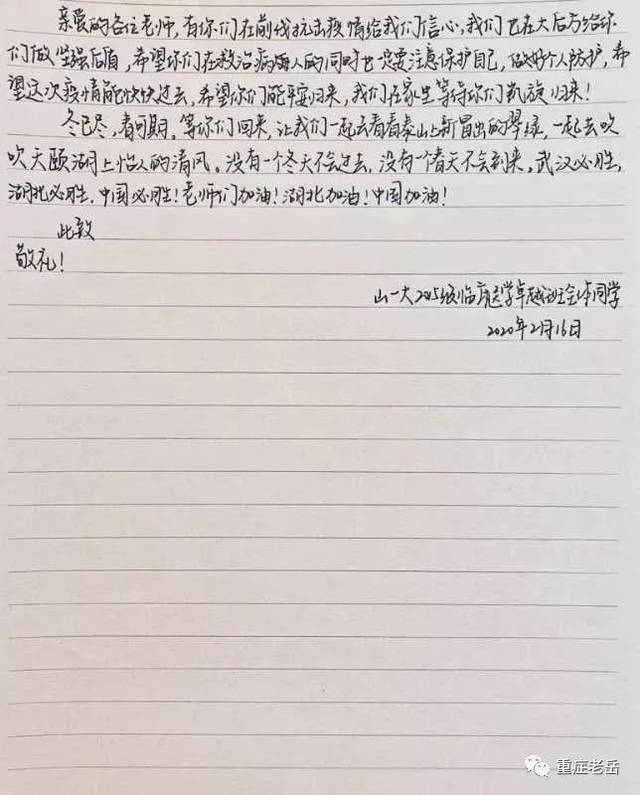 亲爱的各位老师,有你们在前线抗击疫情给我们信心,我们也在大后方给你
们做坚强后盾,希望你们在救治病人的同时也一定要注意保护自己,做好个人防护,希
望这次疫情能快快过去,希望你们能平安归来,我们在家里等待你们凯旋归来!
冬已尽,春可期。等你们回来,让我们一起去看看泰山上新冒出的翠绿,一起去吹
吹天颐湖上怡人的清风。没有一个冬天不会过去,没有一个春天不会到来。武汉必胜,
湖北必胜,中国必胜!老师们加油!湖北加油!中国加油!
此致
敬礼!
山一大2015级临床医学卓越班全体同学
2020年2月16日
重症老岳